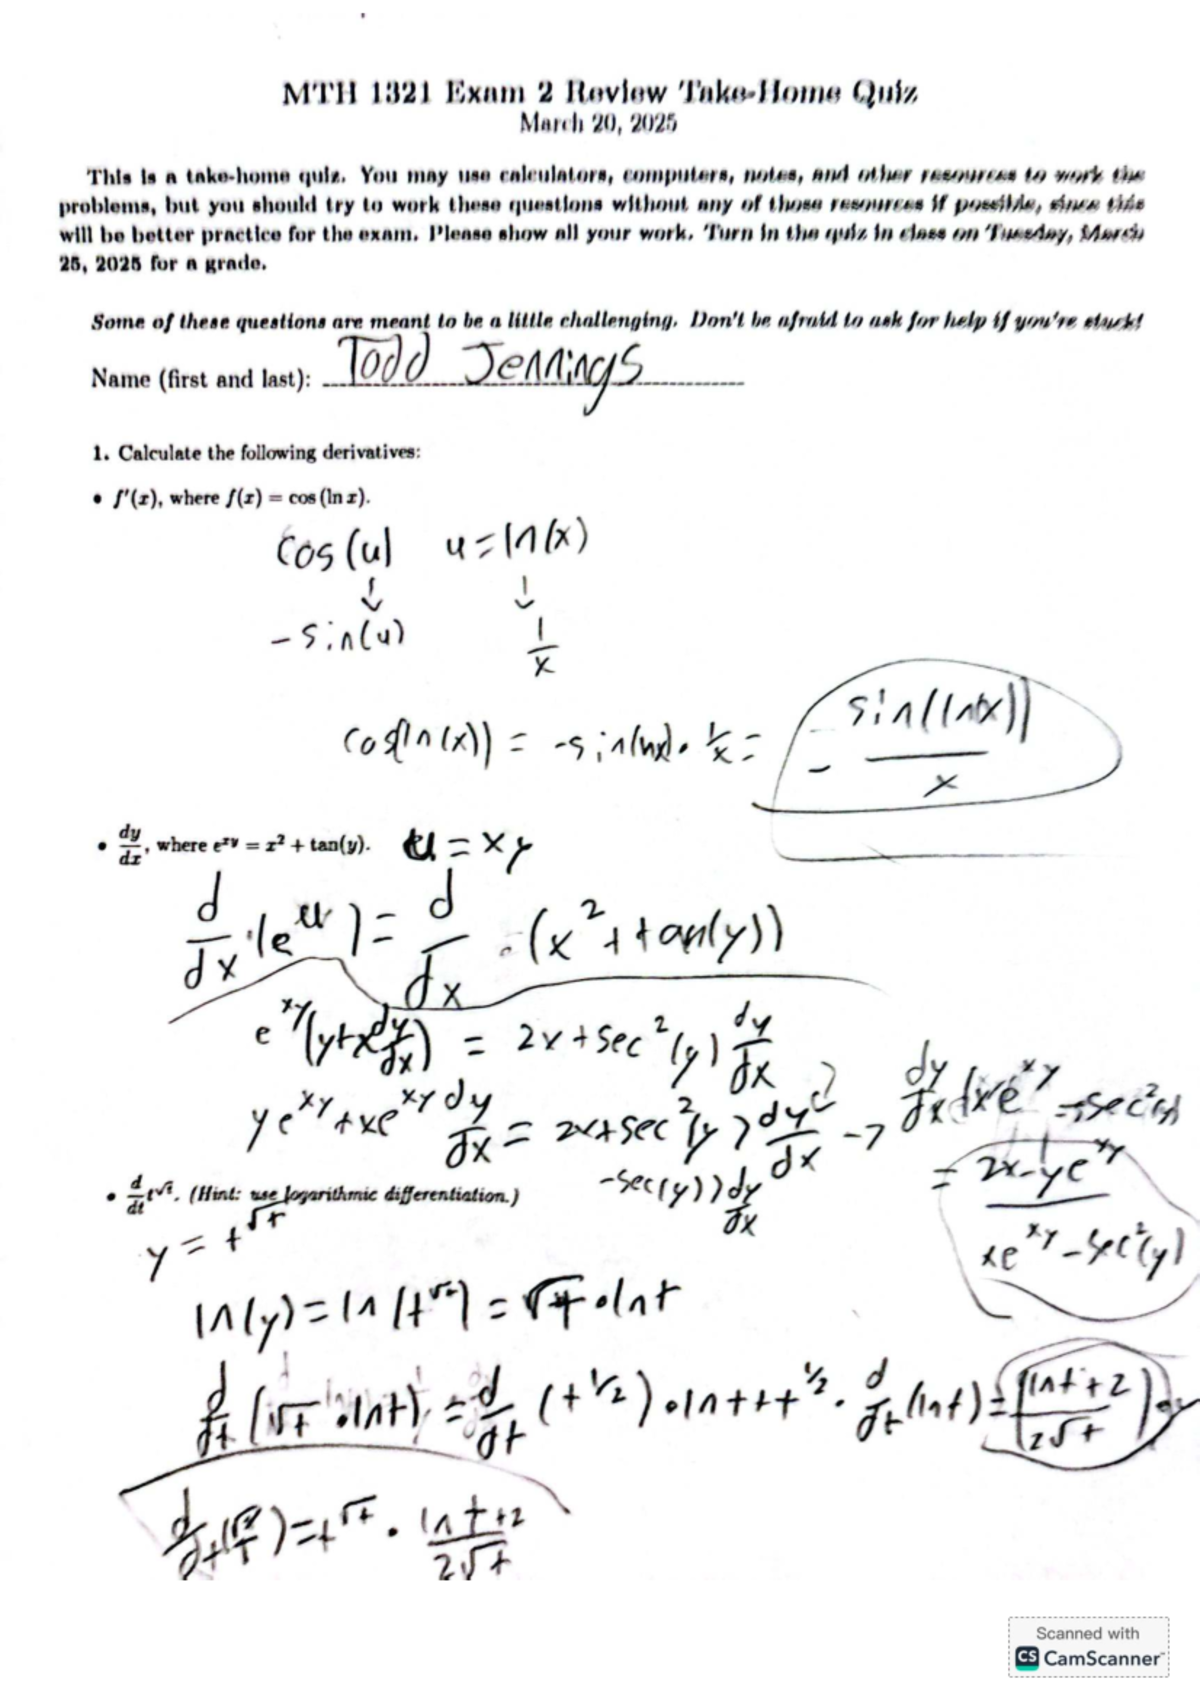 MTH 1321 Exam 2 Review Take-Home Quiz
March 20, 2025
This is a take-home quiz. You may use calculators, computers, notes, and other resources to work the
problems, but you should try to work these questions without any of those resources if possible, since this
will be better practice for the exam. Please show all your work. Turn in the quiz in class on Tuesday, March
25, 2025 for a grade.
Some of these questions are meant to be a little challenging. Don't be afraid to ask for help if you're stuck!
Name (first and last): Todd Jennings
1. Calculate the following derivatives:
• f'(x), where f(x) = cos (ln x).
cos(u) u = ln(x)
↓ ↓
-sin(u) 1/x
cos(ln(x)) = -sin(lnx) • 1/x = - sin(ln(x))/x
• dy/dx, where e^xy = x² + tan(y). u = xy
d/dx • (e^u) = d/dx • (x² + tan(y))
e^xy(y+x dy/dx) = 2x + sec²(y) dy/dx
ye^xy + xe^xy dy/dx = 2x + sec²(y) dy/dx →
-sec(y) dy/dx
= 2x-ye^xy / xe^xy - sec²(y)
• d/dt t^√t. (Hint: use logarithmic differentiation.)
y = t^√t
ln(y) = ln(t^√t) = √t • ln t
d/dt (√t • lnt) = d/dt (t^1/2) • ln t + t^1/2 • d/dt (lnt) = (lnt+2 / 2√t)
= t^√t • lnt+2 / 2√t
Scanned with
CS CamScanner